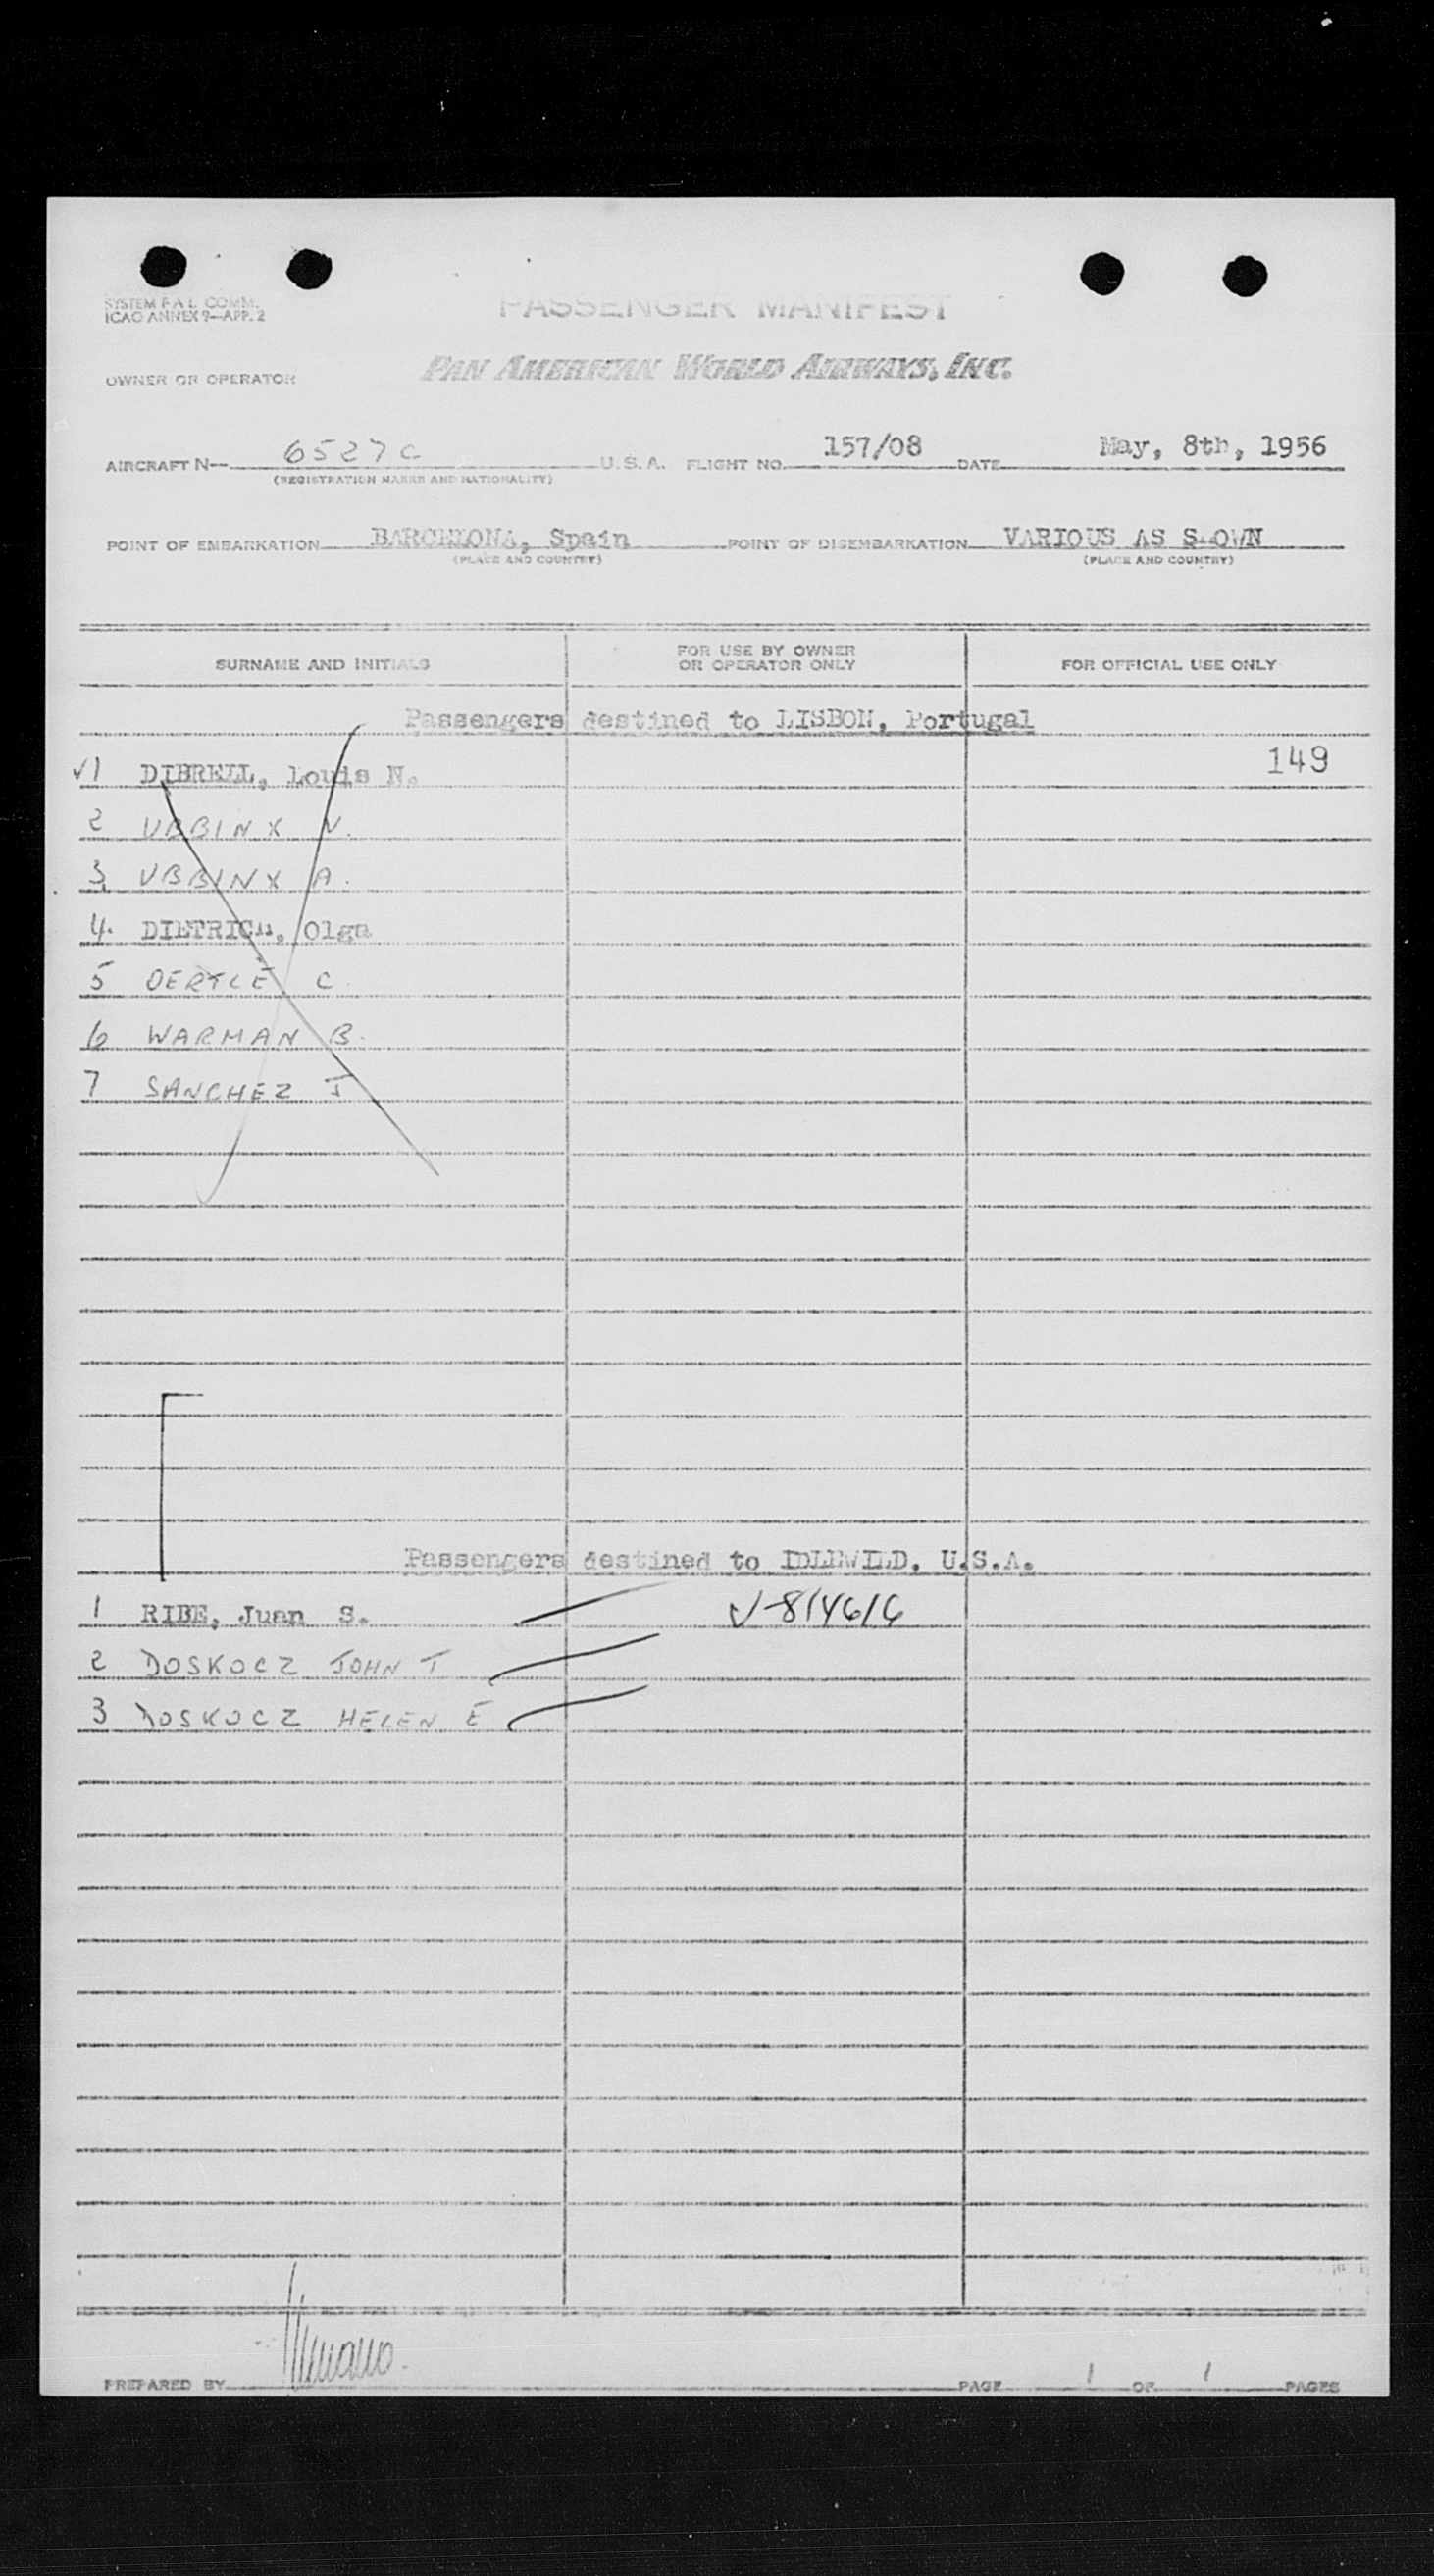 SYSTEM F.A.L. COMM.
ICAO ANNEX 9—APP. 2
PASSENGER MANIFEST
OWNER OR OPERATOR PAN AMERICAN WORLD AIRWAYS, INC.
AIRCRAFT N— 6527C U.S.A. FLIGHT NO. 157/08 DATE May, 8th, 1956
(REGISTRATION MARKS AND NATIONALITY)
POINT OF EMBARKATION BARCELONA, Spain POINT OF DISEMBARKATION VARIOUS AS SHOWN
(PLACE AND COUNTRY) (PLACE AND COUNTRY)
SURNAME AND INITIALS FOR USE BY OWNER OR OPERATOR ONLY FOR OFFICIAL USE ONLY
Passengers destined to LISBON, Portugal
√1 DIBRELL, Louis N. 149
2 UBBINX V.
3 UBBINX A.
4. DIETRICH, Olga
5 OERTLE C
6 WARMAN B.
7 SANCHEZ J
Passengers destined to IDLEWILD, U.S.A.
1 RIBE, Juan S.
2 DOSKOCZ JOHN T
3 DOSKOCZ HELEN E
PREPARED BY PAGE 1 OF 1 PAGES